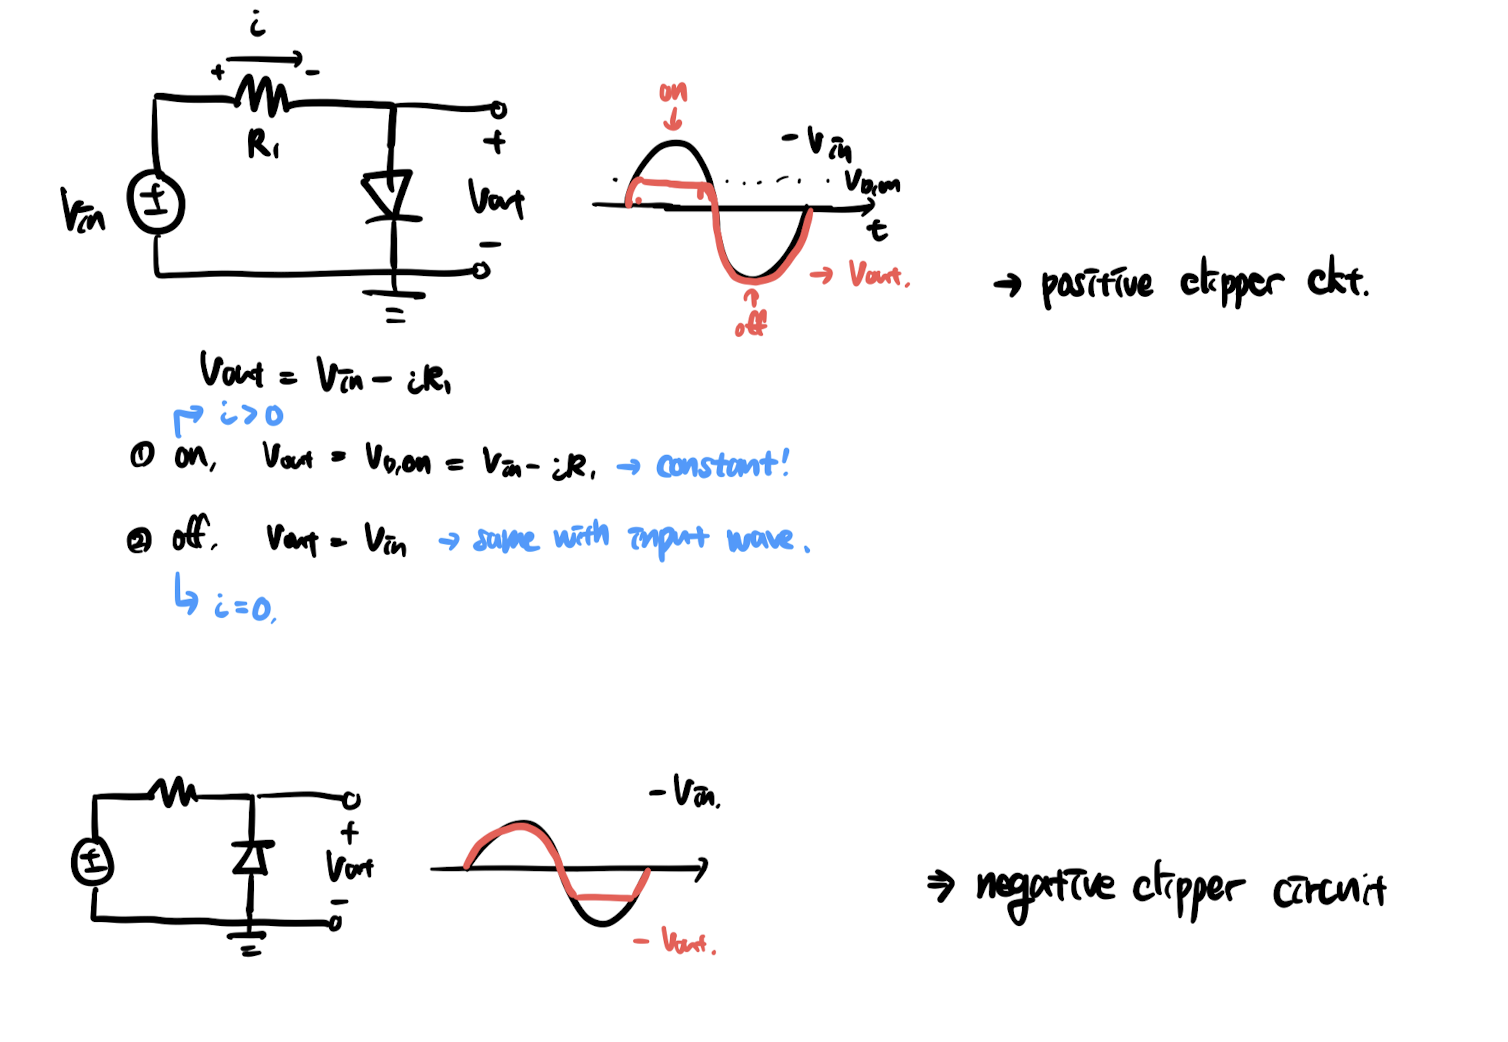 i
+ -
R1
Vin
+
Vout
-
on
- Vin
VD,on
t
→ Vout.
off
→ positive clipper ckt.
Vout = Vin - iR1
↱ i > 0
① on, Vout = VD,on = Vin - iR1 → constant!
② off. Vout = Vin → same with input wave.
↳ i = 0.
+
Vout
-
- Vin.
- Vout.
⇒ negative clipper circuit